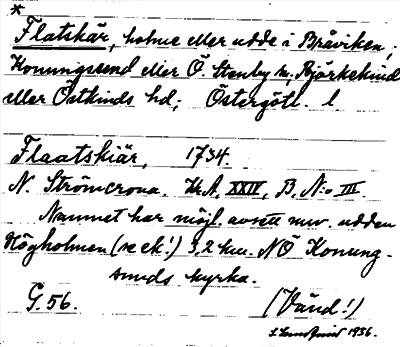 *
Flatskär, holme eller udde i Bråviken;
Konungssund eller Ö. Stenby sn. Björkekind
eller Östkinds hd; Östergötl. l
Flaatskiär, 1734.
N. Strömcrona. Kr.A. XXIV, B. N:o III
Namnet har möjl. avsett nuv. udden
Högholmen (se ek!) 3,2 km. NÖ Konung-
sunds kyrka.
G. 56. (Vänd!)
1936.